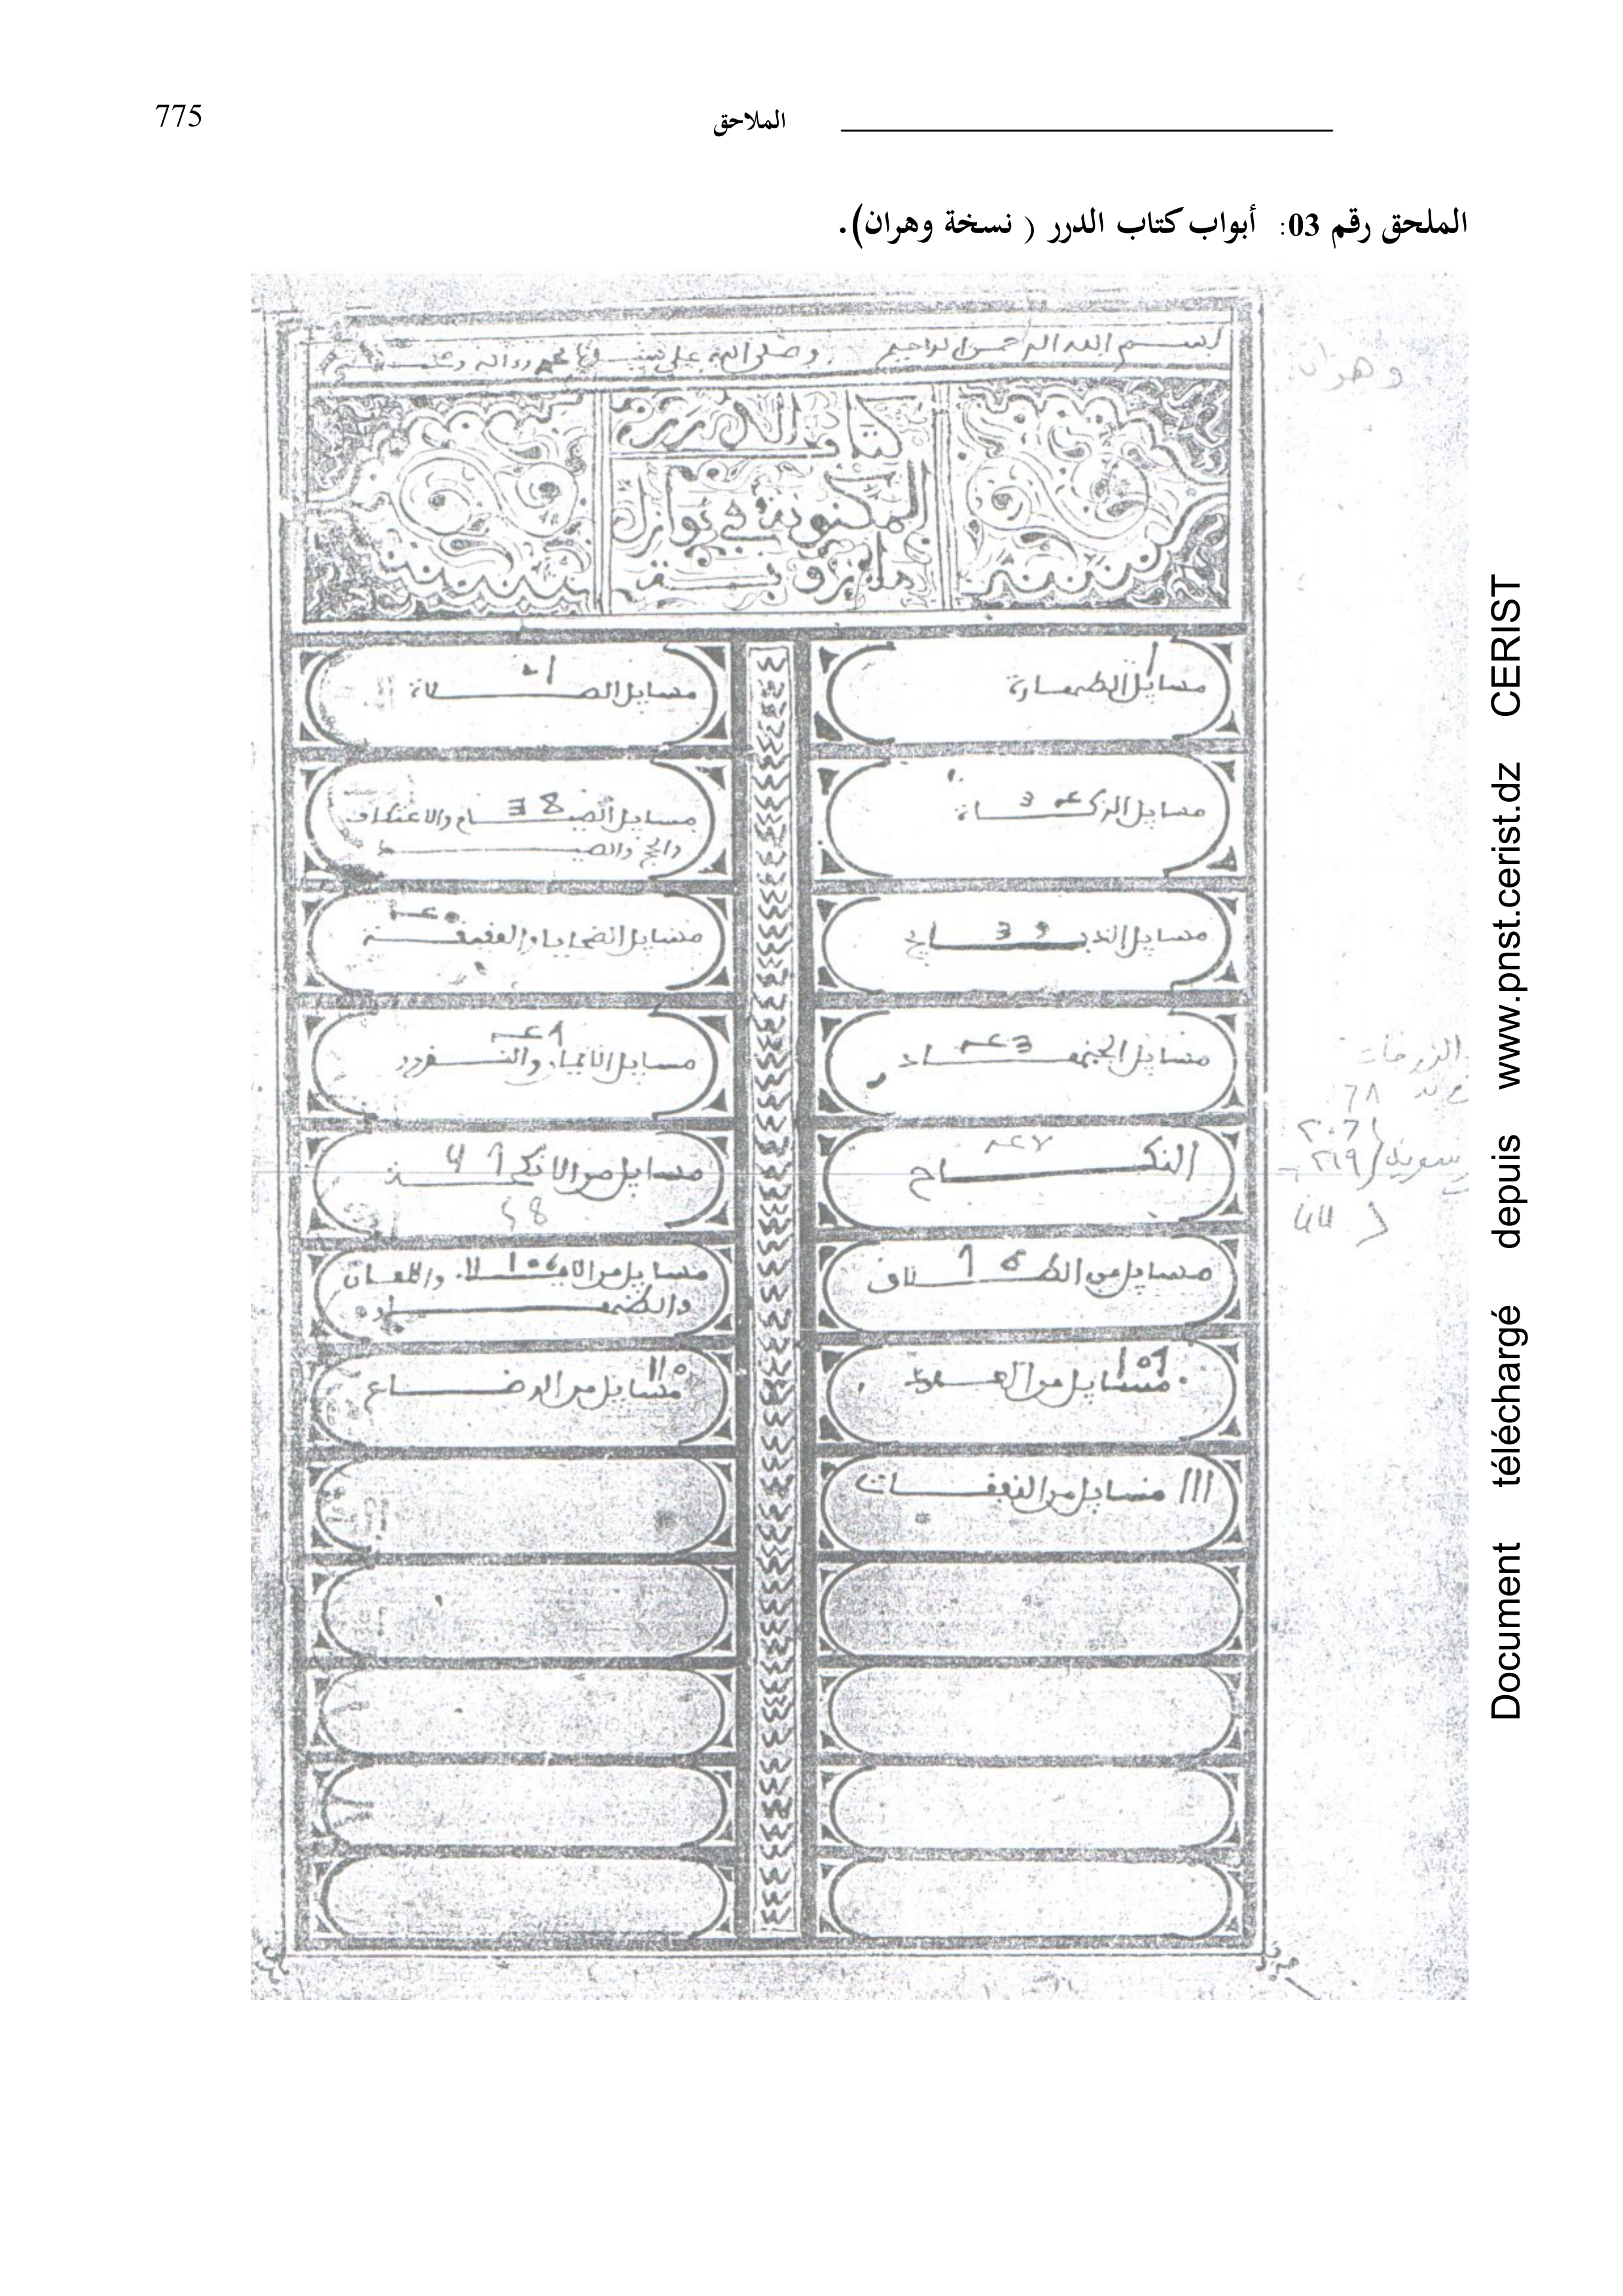 775
الملاحق
الملحق رقم 03: أبواب كتاب الدرر ( نسخة وهران).
بسم الله الرحمن الرحيم وصلى الله على سيدنا محمد وءاله
وهران
كتاب الدرر
المكنونة في نوازل
مازونة
1
مسايل الطهارة
مسايل الصلاة
مسايل الزكاة
38
مسايل الصيام والاعتكاف
والحج والصيد
39
مسايل الذبايح
مسايل الضحايا والعقيقة
مسايل الجهاد
مسايل الأيمان والنذور
النكاح
مسايل من الأنكحة
مسايل من الطلاق
106
مسايل من الايلاء واللعان
والظهار
109
مسايل من العدد
110
مسايل من الرضاع
111 مسايل من النفقات
Document téléchargé depuis www.pnst.cerist.dz CERIST